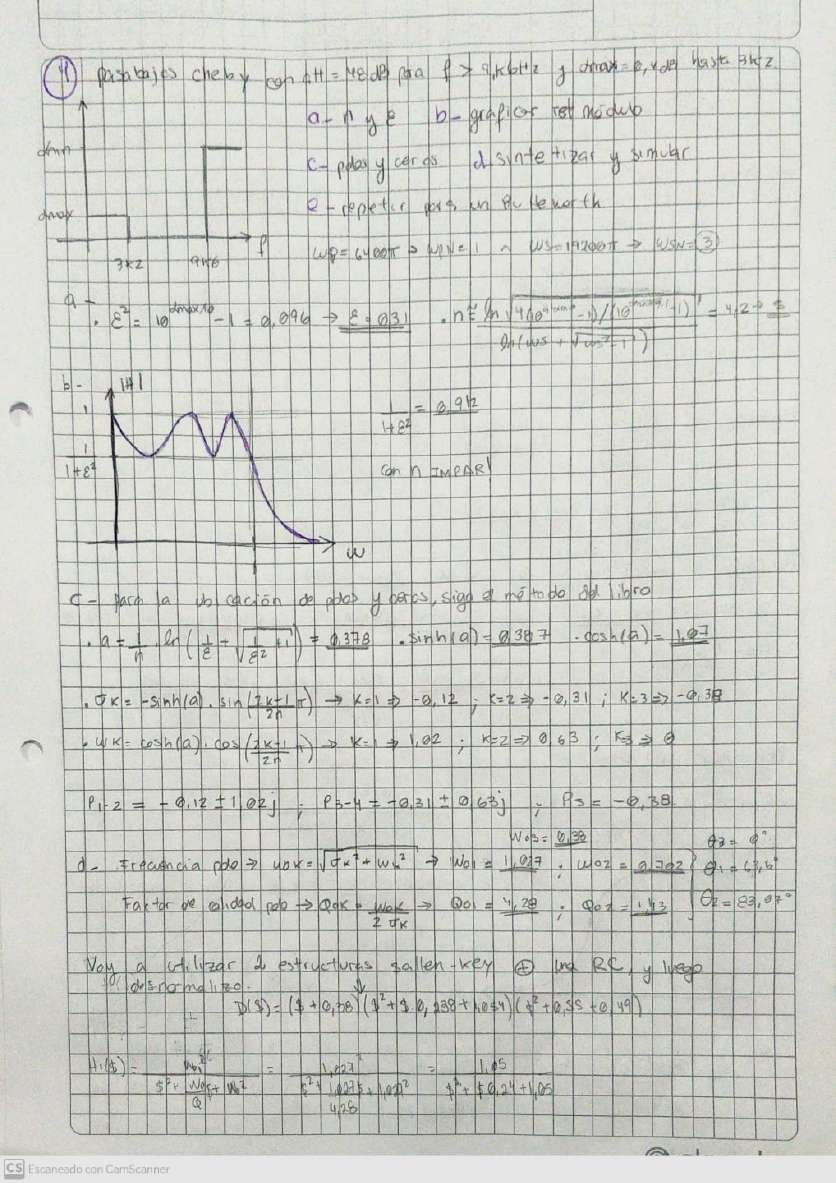 4) pasabajos cheby con ΔH = 48 dB para f > 9,6kHz y αmax = 0,4dB hasta 3k2.
a- n y ε b- graficar rst módulo
c- polos y ceros d. sintetizar y simular
e- repetir para un Butterworth
αmin
αmax
3k2 9k6 f
wp = 6400π → wpN = 1 ∧ ws = 19200π → wsN = 3
a-
. ε² = 10^(αmax/10) - 1 = 0,096 → ε = 0,31 . n = = 4,2 → 5
ln(ws + √(ws² - 1))
b- |H|
1
1/(1+ε²)
1/(1+ε²) = 0,912
con n IMPAR!
w
c- para la ubicación de polos y ceros, sigo el método del libro
. a = 1/n . ln(1/ε + √(1/ε² + 1)) = 0,378 . sinh(a) = 0,387 . cosh(a) = 1,07
. σk = -sinh(a) . sin(2k-1/2n π) → k=1 ⇒ -0,12 ; k=2 ⇒ -0,31 ; k=3 ⇒ -0,38
. wk = cosh(a) . cos(2k-1/2n π) → k=1 ⇒ 1,02 ; k=2 ⇒ 0,63 ; k=3 ⇒ 0
P1-2 = -0,12 ± 1,02j ; P3-4 = -0,31 ± 0,63j ; P5 = -0,38
Wo3 = 0,38 θ3 = 0°
d- Frecuencia polo ⇒ wok = √(σk² + wk²) → wo1 = 1,027 ; wo2 = 0,702
Factor de calidad polo → Qok = wok/2σk → Qo1 = 4,28 ; Qo2 = 1,13 θ2 = 83,07°
Voy a utilizar 2 estructuras sallen-key ⊕ una RC, y luego
desnormalizo.
D($) = ($ + 0,38) ($² + $ 0,238 + 1,054) ($² + 0,55 + 0,49)
H1($) = wo1²/($² + wo/Q $ + wo²) = 1,027²/($² + 1,027/4,28 $ + 1,027²) = 1,05/($² + $ 0,24 + 1,05)
CS Escaneado con CamScanner